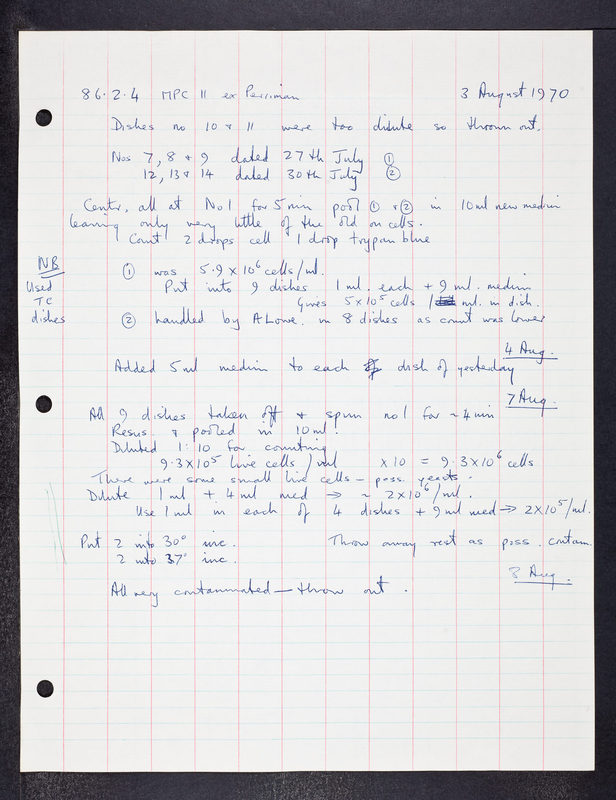 86.2.4 MPC 11 ex Perriman 3 August 1970
Dishes no 10 & 11 were too dilute so thrown out.
Nos 7, 8 & 9 dated 27th July ①
12, 13 & 14 dated 30th July ②
Centr. all at No 1 for 5 min pool ① & ② in 10 ml new medium
leaving only very little of the old on cells.
Count 2 drops cell 1 drop trypan blue
NB
Used
TC
dishes
① was 5.9 x 10⁶ cells/ml.
Put into 9 dishes 1 ml. each + 9 ml. medium
Gives 5 x 10⁵ cells / ml. in dish.
② handled by A Lowe. in 8 dishes as count was lower
4 Aug.
Added 5 ml medium to each dish of yesterday
7 Aug.
All 9 dishes taken off & spun no 1 for ~ 4 min
Resus & pooled in 10 ml.
Diluted 1:10 for counting
9.3 x 10⁵ live cells / ml x 10 = 9.3 x 10⁶ cells
There were some small live cells – poss. yeasts.
Dilute 1 ml + 4 ml med → ~ 2 x 10⁶/ml.
Use 1 ml in each of 4 dishes + 9 ml med → 2 x 10⁵/ml.
Put 2 into 30° inc. Throw away rest as poss. contam.
2 into 37° inc.
8 Aug.
All very contaminated – throw out.